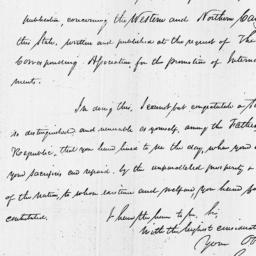 publication, concerning the Western and Northern Ca
this State, written and published at the request of The
Corresponding Association for the promotion of Intern
ments.
In doing this, I cannot but congratulate a
so distinguished and venerable as yourself, among the Fathers
Republic, that you have lived to see the day, when your
your sacrifices are repaid, by the unparalleled prosperity
of the nation, to whose existence and welfare, you have
contributed.
I have the honor to be, Sir,
With the highest consideration
Your Ob